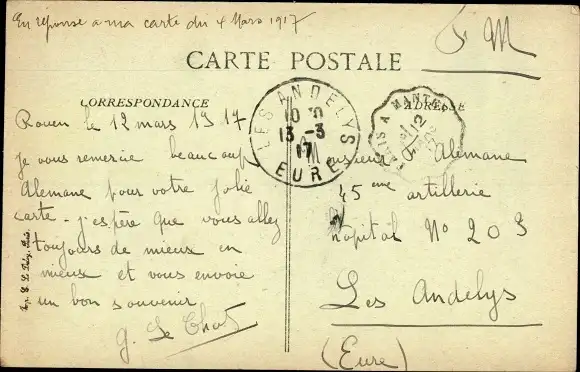 En reponse a ma carte du 4 Mars 1917
F M
CARTE POSTALE
CORRESPONDANCE
ADRESSE
Rouen le 12 mars 1917
je vous remercie beaucoup
Alemane pour votre jolie
carte - j'espère que vous allez
toujours de mieux en
mieux et vous envoie
un bon souvenir
G. Le Chat
LES ANDELYS
13 -3
17
EURE
A MANTES
12
Monsieur Alemane
45 eme artillerie
hôpital No 203
Les Andelys
(Eure)